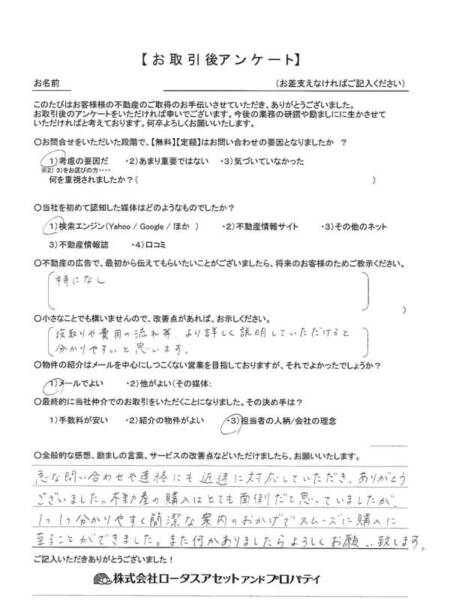 【お取引後アンケート】
お名前　　　　　(お差支えなければご記入ください)
このたびはお客様様の不動産のご取得のお手伝いさせていただき、ありがとうございました。
お取引後のアンケートをいただければ幸いでございます。今後の業務の研鑽や励ましにに生かさせて
いただければと考えております。何卒よろしくお願いいたします。
○お問合せをいただいた段階で、【無料】【定額】はお問い合わせの要因となりましたか ？
1)考慮の要因だ　・2)あまり重要ではない　・3)気づいていなかった
※2) 3)をお選びの方・・・・
何を重視されましたか？(　　　　　)
○当社を初めて認知した媒体はどのようなものでしたか？
1)検索エンジン(Yahoo / Google / ほか ）　・2)不動産情報サイト　・3)その他のネット
3)不動産情報誌　・4)口コミ
○不動産の広告で、最初から伝えてもらいたいことがございましたら、将来のお客様のためご教示ください。
特になし
○小さなことでも構いませんので、改善点があれば、お示しください。
段取りや費用の流れ等、より詳しく説明していただけると
分かりやすいと思います。
○物件の紹介はメールを中心にしつこくない営業を目指しておりますが、それでよかったでしょうか？
1)メールでよい　・2)他がよい(その媒体:
○最終的に当社仲介でのお取引をいただくことになりました。その決め手は？
1)手数料が安い　・2)紹介の物件がよい　・3)担当者の人柄/会社の理念
○全般的な感想、励ましの言葉、サービスの改善点などいただけましたら、お願いいたします。
急な問い合わせや連絡にも迅速に対応していただき、ありがとう
ございました。不動産の購入はとても面倒だと思っていましたが、
1つ1つ分かりやすく簡潔な案内のおかげでスムーズに購入に
至ることができました。また何かありましたらよろしくお願い致します。
ご記入いただきありがとうございました！
株式会社ロータスアセットアンドプロパティ